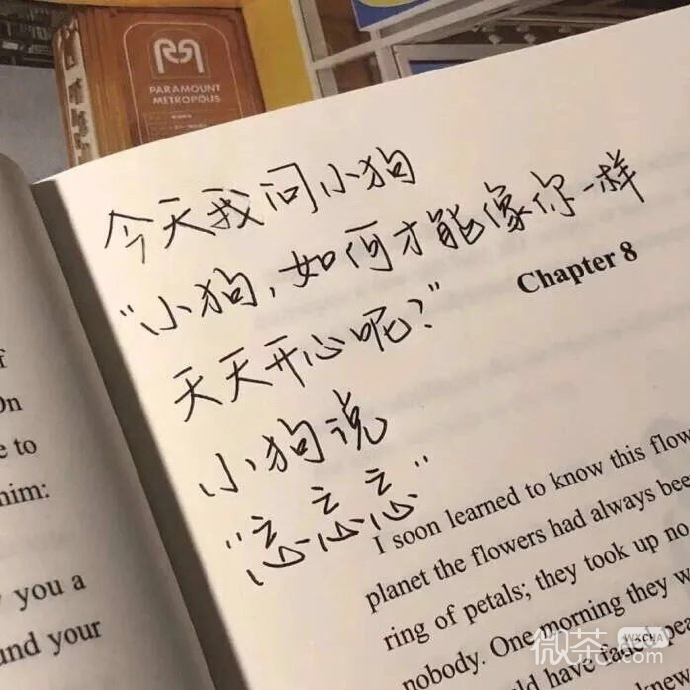 PARAMOUNT
METROPOLIS
今天我问小狗
"小狗,如何才能像你一样
天天开心呢?"
小狗说
"忘忘忘"
Chapter 8
I soon learned to know this flow
planet the flowers had always bee
ring of petals; they took up no
nobody. One morning they w
ld have fade
pea
knew
f
On
e to
him:
you a
und your
微茶
WXCHA